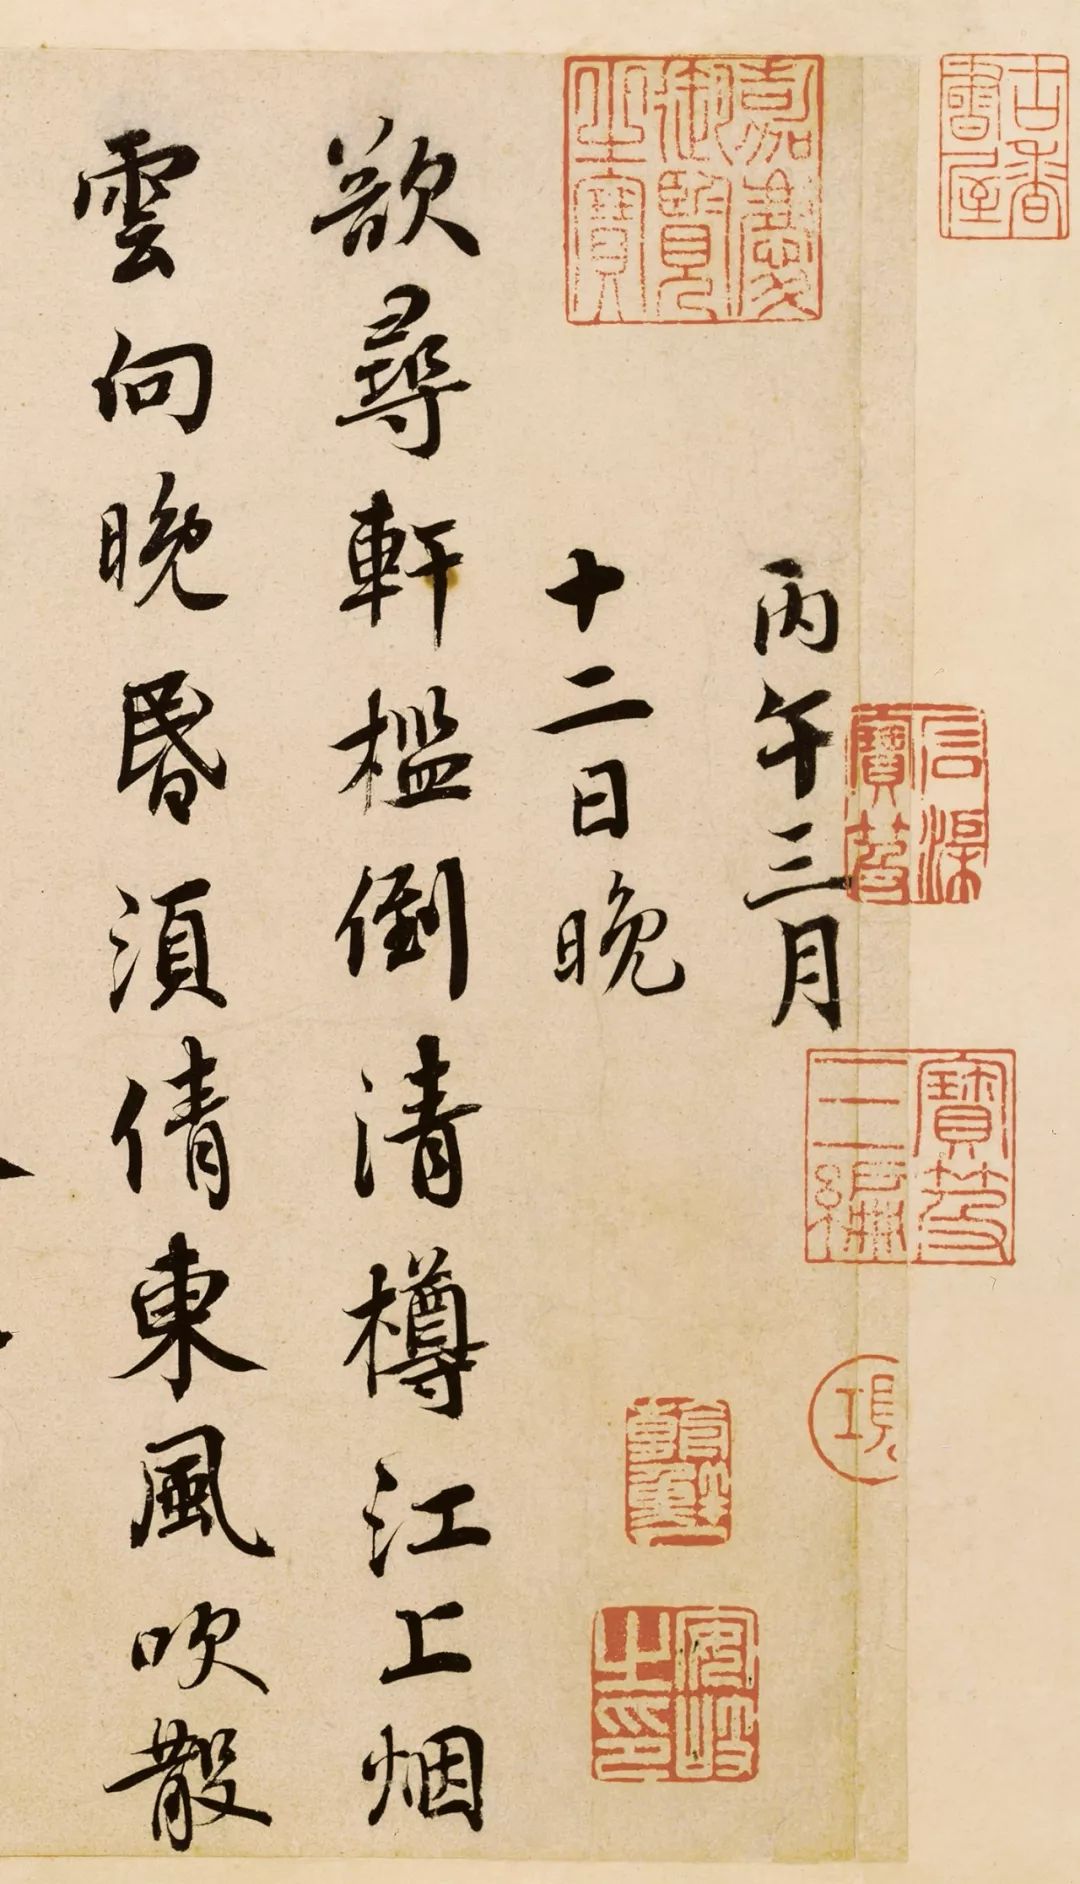 丙午三月
十二日晚
欲尋軒檻倒清樽江上烟
雲向晚昏須倩東風吹散
古香書屋
嘉慶御覽之寶
寶笈三編
項
安岐之印